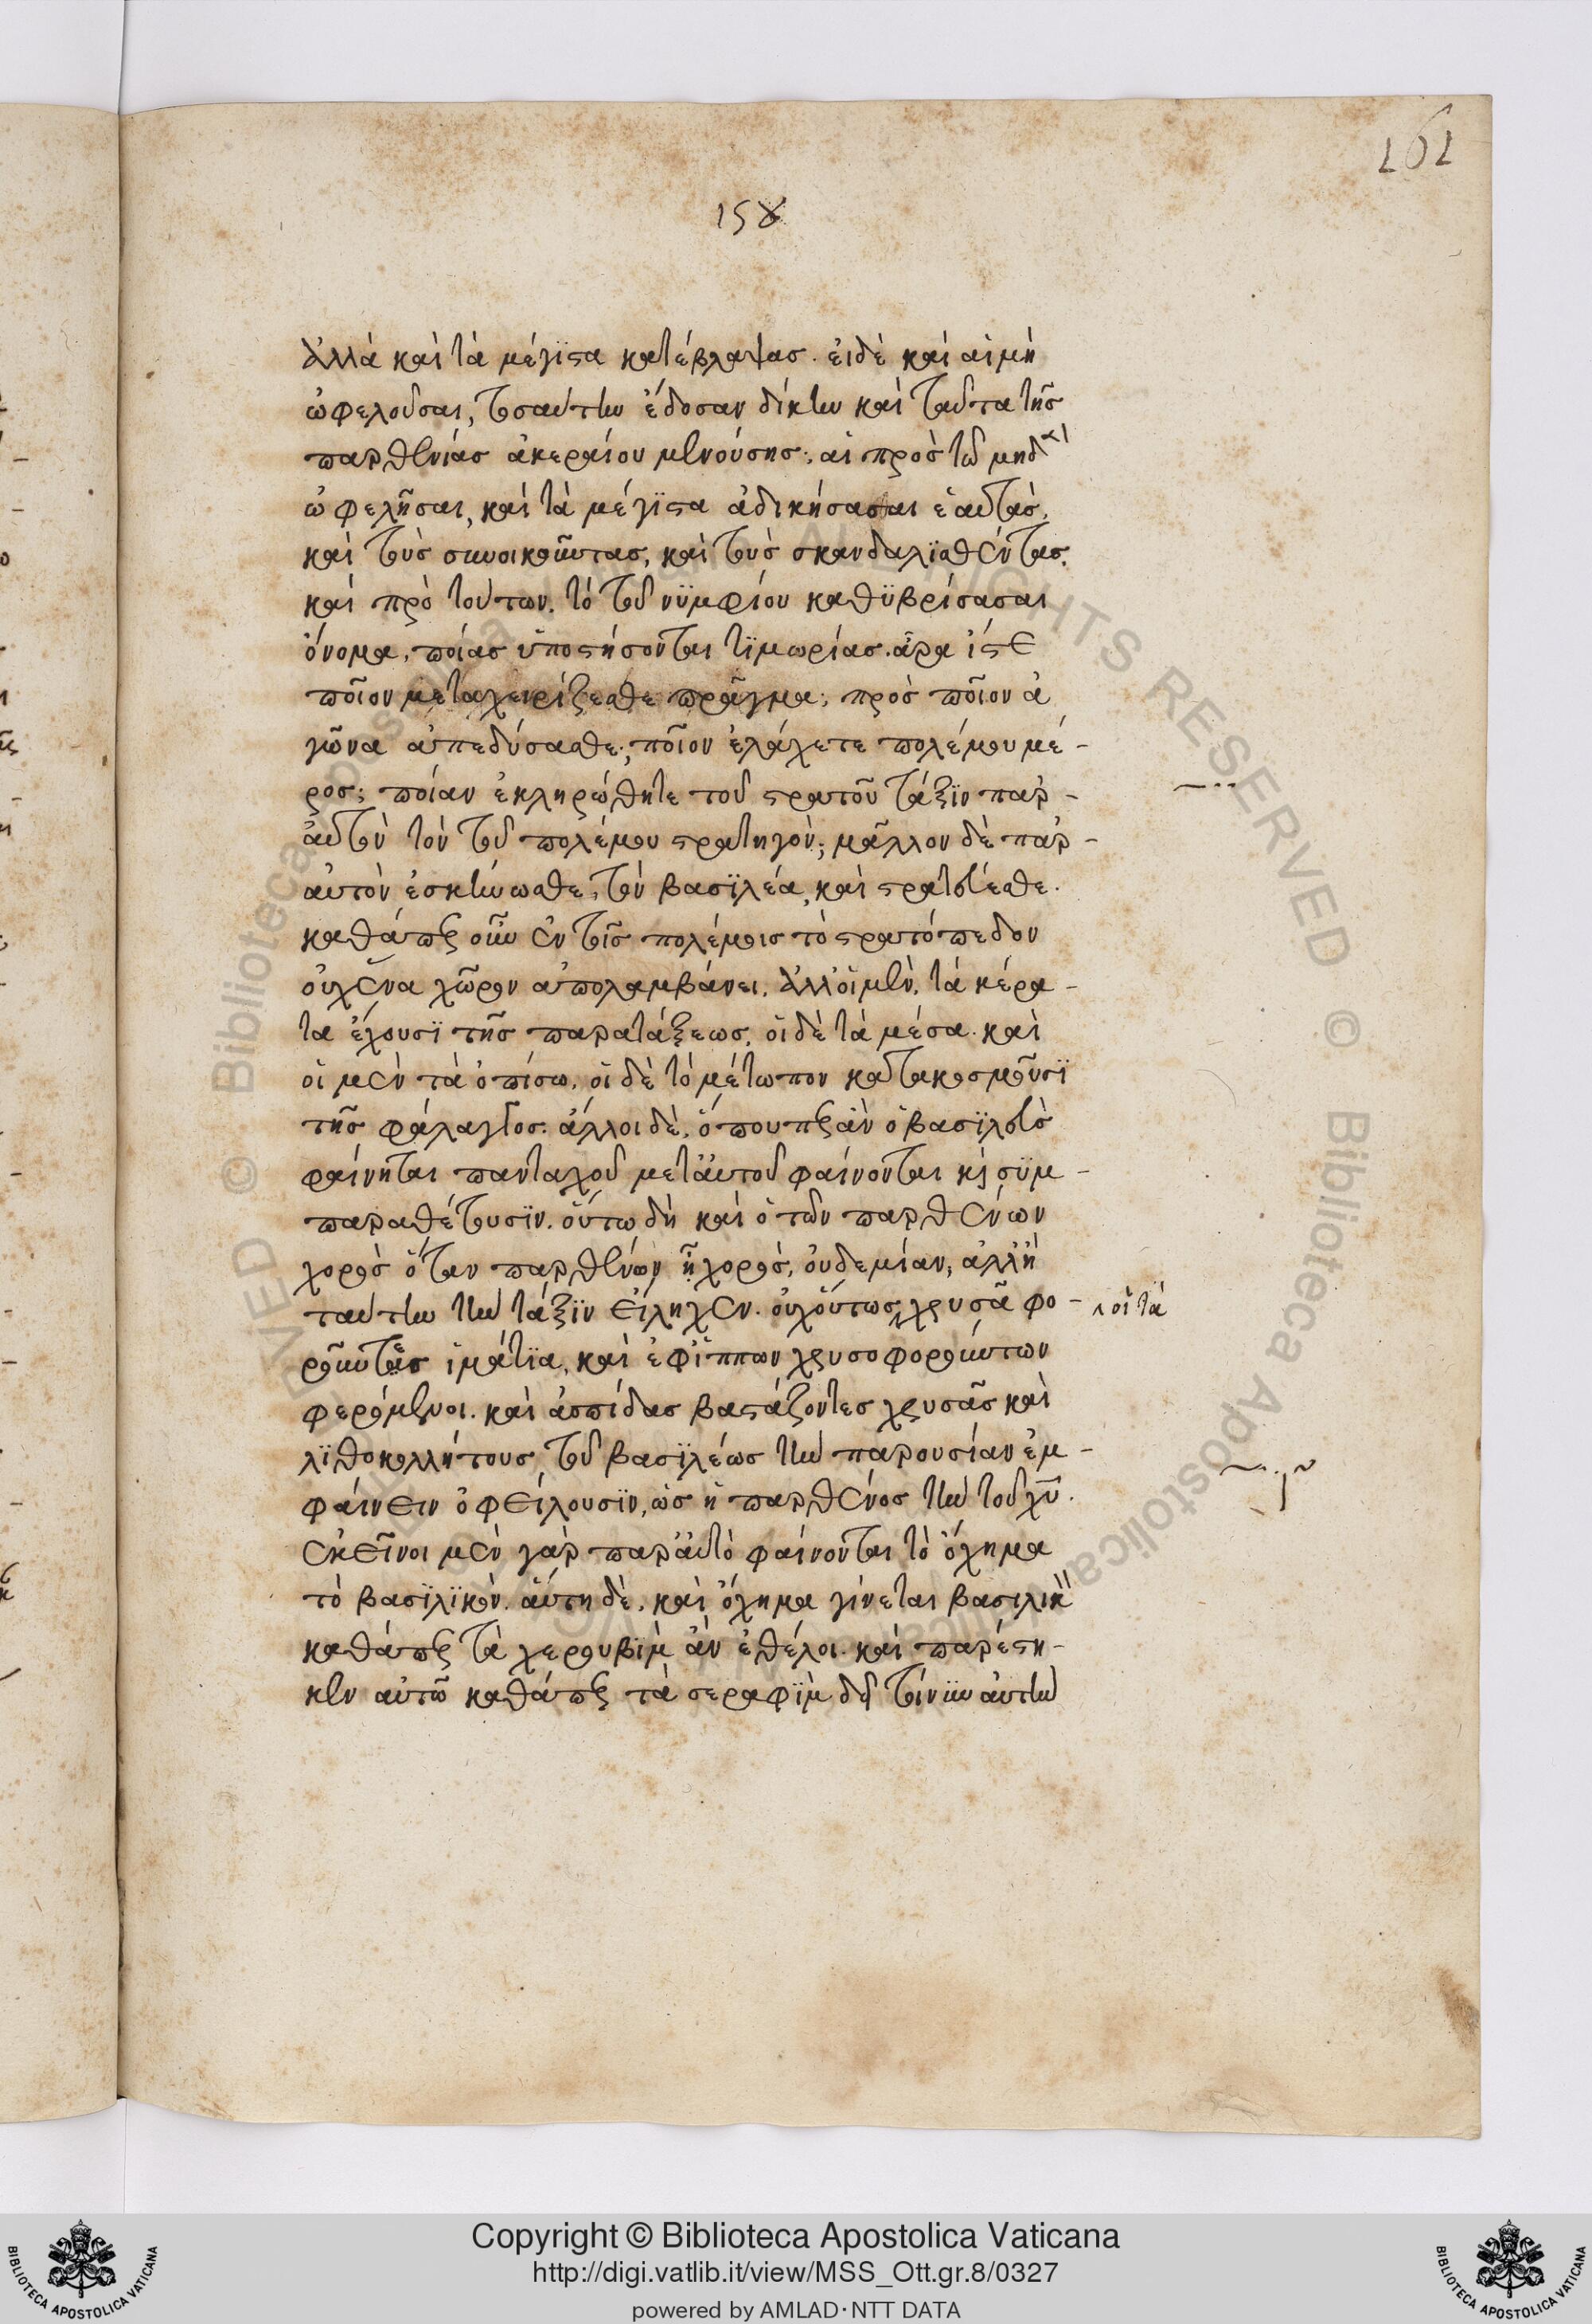 161
158
ἀλλὰ καὶ τὰ μέγιϛα κατέβλαψασ. εἰ δὲ καὶ αἱ μὴ
ὠφελοῦσαι, τοσαύτην ἔδοσαν δίκην καὶ ταῦτα τῆσ
παρθενίασ ἀκεραίου μενούσησ· αἱ πρὸσ τῶ μηδὲν
ὠφελῆσαι, καὶ τὰ μέγιϛα ἀδικήσασαι ἑαυτὰσ,
καὶ τοὺσ συνοικοῦντασ, καὶ τοὺσ σκανδαλϊσθέντασ,
καὶ πρὸ τούτων, τὸ τοῦ νϋμφίου καθϋβρίσασαι
ὄνομα, ποίασ ὑποϛήσονται τϊμωρίασ. ἆρα ἴϛε
ποῖον μεταχειρίζεσθε πρᾶγμα; πρὸσ ποῖον ἀ
γῶνα ἀπεδύσασθε; ποῖον ἐλάχετε πολέμου μέ-
ροσ; ποίαν ἐκληρώθητε τοῦ ϛρατοῦ τάξϊν παρ-
αὐτὸν τὸν τοῦ πολέμου ϛρατηγὸν; μᾶλλον δὲ παρ-
αὐτὸν ἐσκήνωσθε, τὸν βασϊλέα, καὶ ϛρατεύεσθε.
καθάπερ οὖν ἐν τοῖσ πολέμοισ τὸ ϛρατόπεδον
οὐχ ἕνα χῶρον ἀπολαμβάνει, ἀλλ' οἱ μὲν, τὰ κέρα-
τα ἔχουσϊ τῆσ παρατάξεωσ, οἱ δὲ τὰ μέσα. καὶ
οἱ μὲν τὰ ὀπίσω, οἱ δὲ τὸ μέτωπον κατακοσμοῦσϊ
τῆσ φάλαγγοσ. ἄλλοι δὲ, ὅπου περ ἂν ὁ βασϊλεὺσ
φαίνηται πανταχοῦ μετ' αὐτοῦ φαίνονται κϳ σϋμ-
παραθέουσϊν. οὕτω δὴ καὶ ὁ τῶν παρθένων
χορὸσ ὅταν παρθένων ᾖ χορὸσ, οὐδεμίαν, ἀλλ' ἢ
ταύτην τὴν τάξϊν εἴληχεν. οὐχ οὕτωσ ‸ χρυσᾶ φο- ‸ οἱ τὰ
ροῦντεσ ἱμάτϊα, καὶ ἐφ' ἵππων χρυσοφορούντων
φερόμενοι. καὶ ἀσπίδασ βαϛάζοντεσ χρυσᾶσ καὶ
λϊθοκολλήτουσ, τοῦ βασϊλέωσ τὴν παρουσίαν ἐμ-
φαίνειν ὀφείλουσϊν, ὡσ ἡ παρθένοσ τὴν τοῦ χῦ.
ἐκεῖνοι μὲν γὰρ παρ' αὐτὸ φαίνονται τὸ ὄχημα
τὸ βασϊλϊκὸν. αὕτη δὲ, καὶ ὄχημα γίνεται βασιλικὸν
καθάπερ τὰ χερουβὶμ ἂν ἐθέλοι. καὶ παρέϛη-
κεν αὐτῶ καθάπερ τὰ σεραφϊμ. δεῖ τοίνϋν αὐτὴν
Copyright © Biblioteca Apostolica Vaticana
http://digi.vatlib.it/view/MSS_Ott.gr.8/0327
powered by AMLAD·NTT DATA
BIBLIOTECA APOSTOLICA VATICANA
BIBLIOTECA APOSTOLICA VATICANA